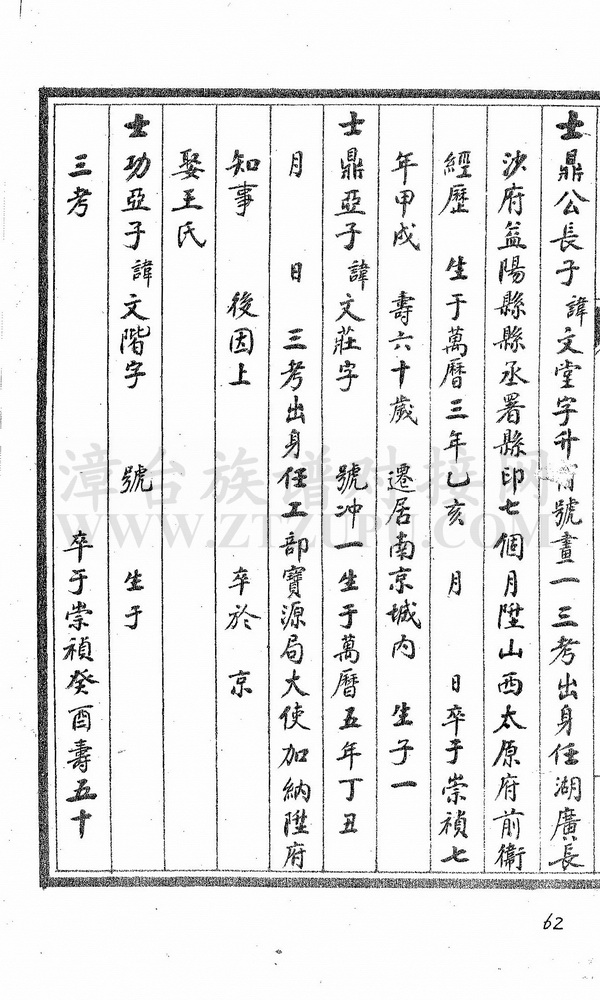 士鼎公長子諱文堂字升甫號畫一三考出身任湖廣長
沙府益陽縣縣丞署縣印七個月陞山西太原府前衛
經歷 生于萬曆三年乙亥 月 日卒于崇禎七
年甲戌 壽六十歲 遷居南京城內 生子一
士鼎亞子諱文莊字 號冲一生于萬曆五年丁丑
月 日 三考出身任工部寶源局大使加納陞府
知事 後因上 卒於 京
娶王氏
士功亞子諱文階字 號 生于
三考 卒于崇禎癸酉壽五十
漳台族谱对接网
WWW.ZTZUPU.COM
62